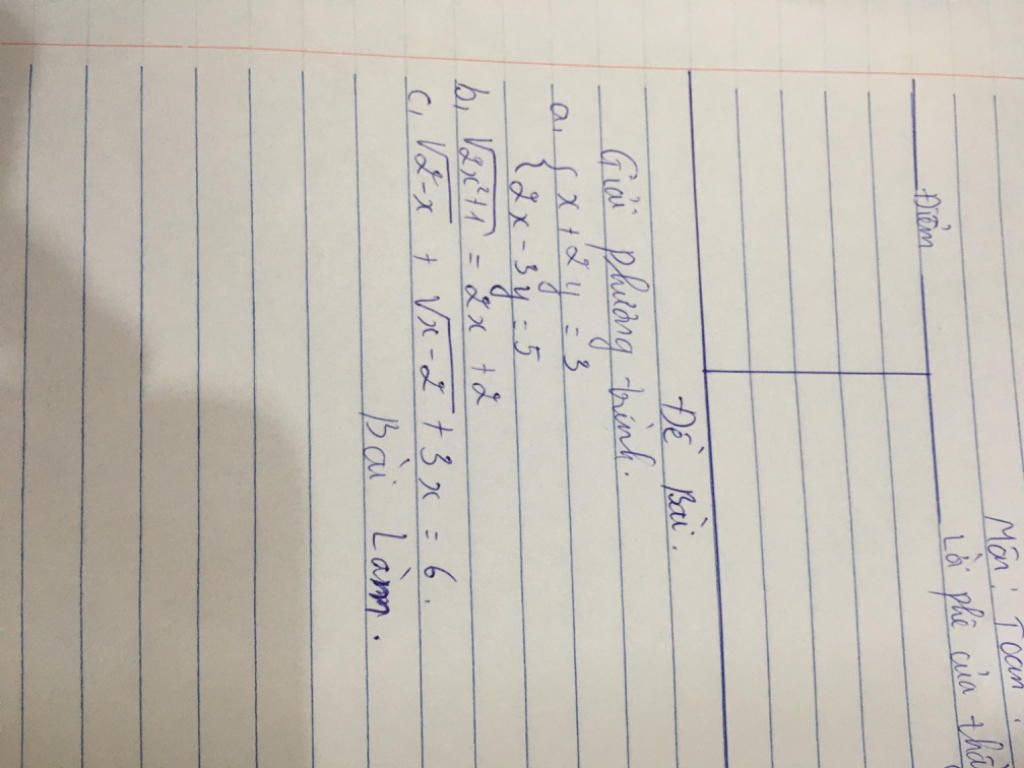 Môn: Toán.
Điểm
Lời phê của thầy
Đề Bài.
Giải phương trình.
a, { x + 2y = 3
{ 2x - 3y = 5
b, √2x²+1 = 2x + 2
c, √2-x + √x-2 + 3x = 6.
Bài Làm.